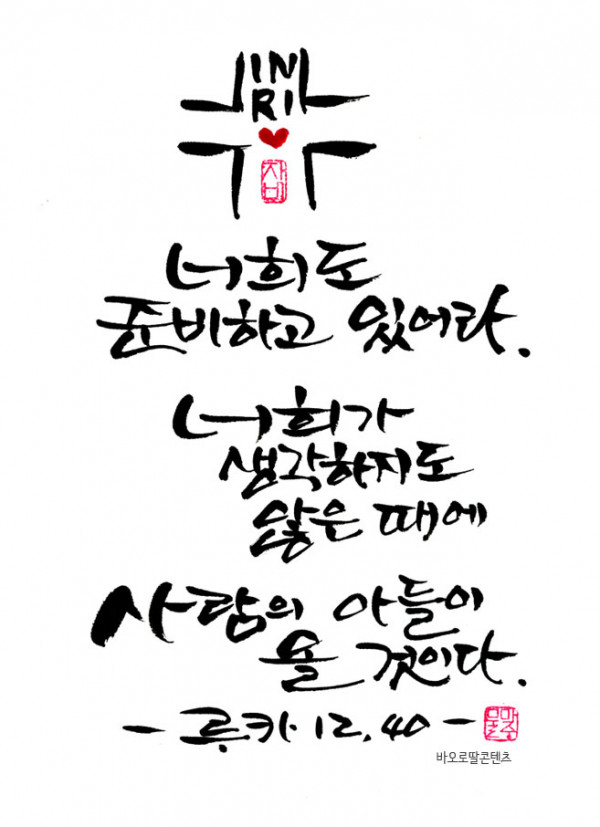 IN
RI
자비
너희도
준비하고 있어라.
너희가
생각하지도
않은 때에
사람의 아들이
올 것이다.
- 루카 12,40 -
바오로딸콘텐츠